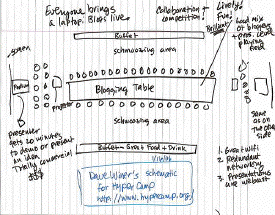 Everyone brings
a laptop. Blogs live.
Collaboration +
competition!
Lively!
Fun!
Brilliant!
Good mix
of bloggers
+ pres. Level
playing area
screen
Buffet
schmoozing area
Podium
Blogging Table
projector
presenter
gets 20 minutes
to demo or present
an idea
Totally commercial
schmoozing area
Buffet - Great Food + Drink
same
as on
the other
side
Dave Winer's schematic
for HyperCamp
http://www.hypercamp.org/
1. Great wifi
2. Redundant
networking
3. Presentations
are webcast